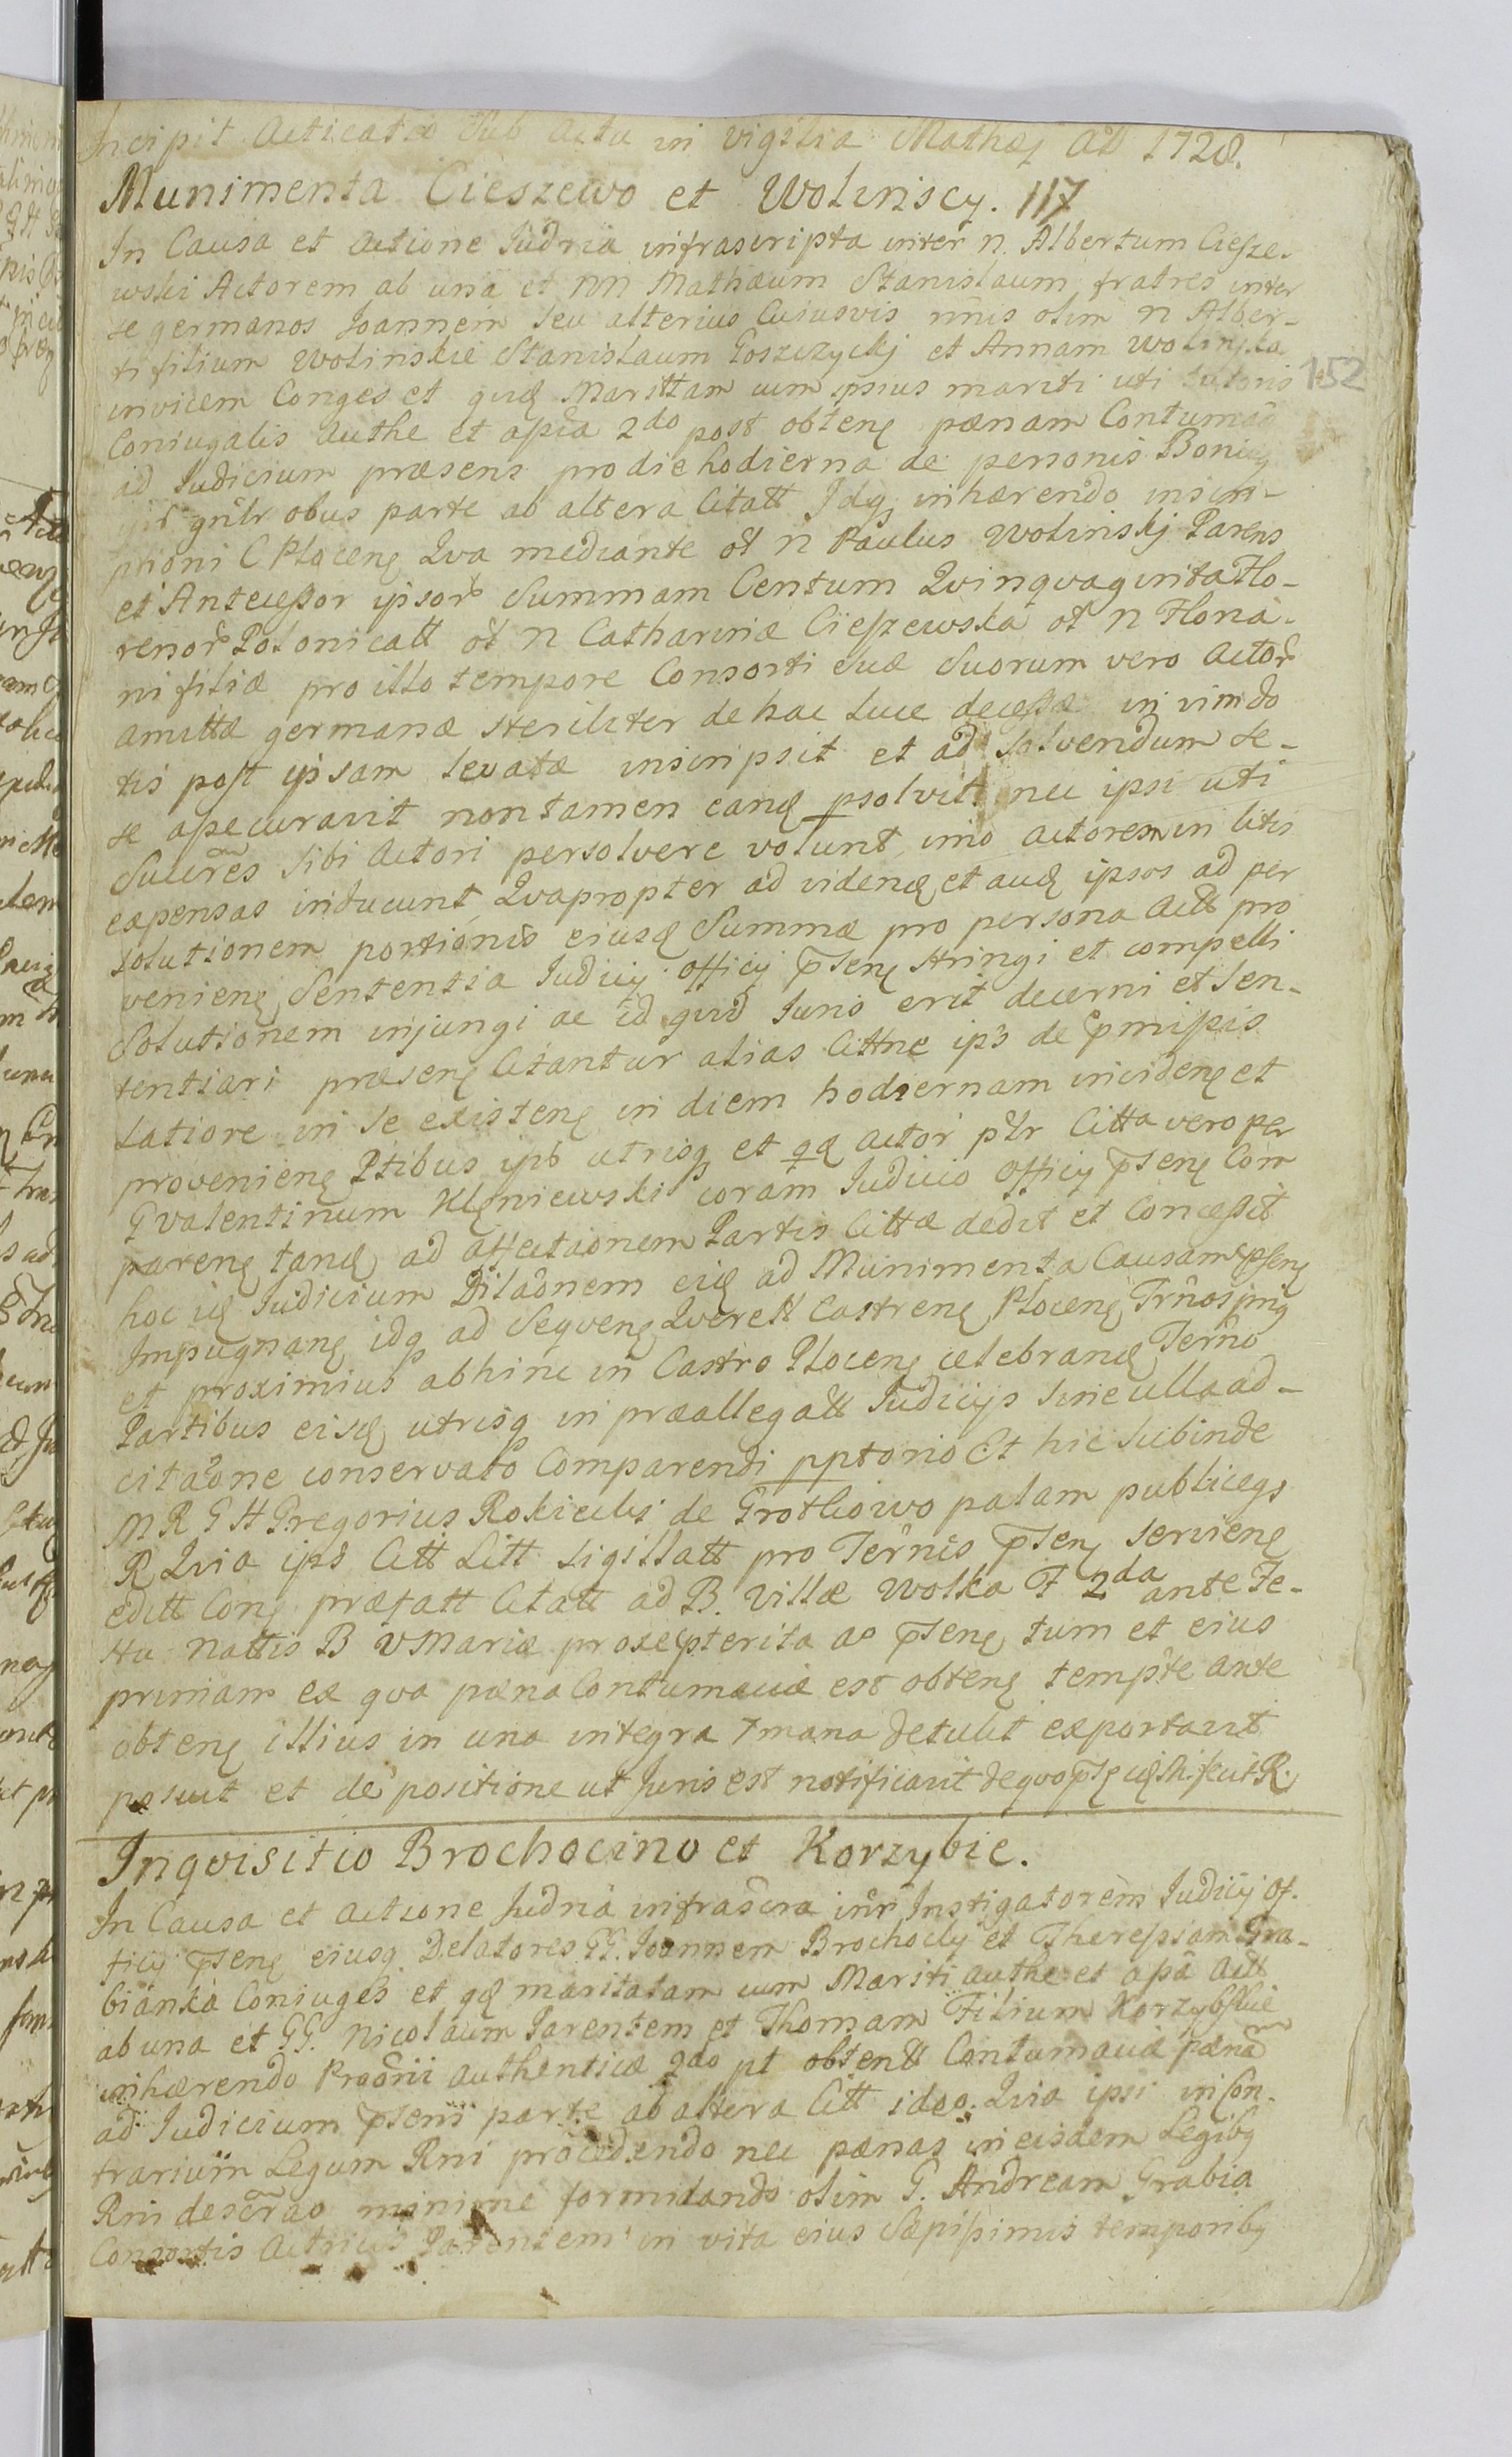 Incipit Acticatio Sub Actu in vigilia Mathæj AD 1728.
Munimenta Cieszewo et Wolinscy. 117
In Causa et actione Judria infrascripta inter n. Albertum Ciesze-
wski Actorem ab una et NN Mathæum Stanislaum fratres inter
se germanos Joannem seu alterius Cuiusvis nnis olim n Alber-
ti filium Wolinskie Stanislaum Goszczyckj et Annam Wolinska
invicem Conges et quæ Marittam cum ipsius mariti uti tutoris 152
Coniugalis Authe et assia 2do post obtenę pænam Contumac
ad Judicium præsens pro die hodierna de personis Bonisq
gnlr obus parte ab altera Citatt Idq inhærendo inscri-
ptioni C Plocenę Qva mediante ol n Paulus Wolinskj Parens
et Antecessor ipsor Summam Centum Qvinqvaginta Flo-
renor Polonicatt ol n Catharinæ Cieszewska ol n Flona-
ni filiæ pro illo tempore Consorti suæ Suorum vero actor
amittæ germanæ steriliter de hac luce decessæ in vim do
tis post ipsam levatæ inscripsit et ad solvendum se-
se assecuravit non tamen eanđ psolvit nec ipsi uti
Succres sibi Actori persolvere volunt imo actorem in litis
expensas inducunt, Qvapropter ad videnđ et auđ ipsos ad per
solutionem portionis eiusđ Summæ pro persona Actt pro
venienę Sententia Judicij Officij pseng stringi et compelli
Solutionem injungi ac id quid Juris erit decerni et sen-
tentiari præsenę Citantur alias Cittne ips de pmissis
latiore in se existenę in diem hodiernam incidenę et
provenienę Ptibus ipb utrisq et qđ actor psr Citta vero per
G Valentinum Klęniewski coram Judicio Officij psenę Com
parenę tanđ ad affectaonem Partis Cittæ dedit et Concessit
hoc iđ Judicium Dilaonem eiđ ad Munimenta Causam psenę
Impugnanę idq ad Seqvenę Qverell Castrenę Plocenę Trnos pmę
et proximius abhinc in Castro Plocenę celebranđ Termo
Partibus eisđ utrisq in præallegatt Judicijs sine ulla ad-
citaone conservato Comparendi pptorio Et hic subinde
M R G H Gregorius Rokicki de Grotkowo palam publiceqs
R Qvia ips Citt Litt sigillatt pro Ternis psenę servienę
editt Conę præfatt Citatt ad B. Villæ Wolka F 2da ante Fe-
stu Nattis B V Mariæ proxe pterita ao psenę tum et eius
primam ex qva pæna Contumaciæ est obtenę tempte ante
obtenę illius in una integra 7mana detulit exportavit
posuit et de positione ut Juris est notificavit de qvo psę uđ M. fecit R.
Inqvisitio Brochocino et Korzybie.
In Causa et actione Judria infrascra inr Instigatorem Judicij of-
ficij psenę eiusq Delatores GG. Joannem Brochocky et Theresiam Gra-
bianka Coniuges et qđ maritatam cum Mariti authe et assa Actt
ab una et GG. Nicolaum Parentem et Thomam Filium Korzybskie
inhærendo Procrii authenticæ 2do pt obtentt Contumaciæ pæna
ad Judicium pseni parte ab altera Citt ideo. Qvia ipsi in Con-
trarium Legum Rni procedendo nec pænas in eisdem Legibq
Rni descrao minime formidando olim G. Andream Grabia
Consortis Actricis Parentem in vita eius Sæpissimis temporibq